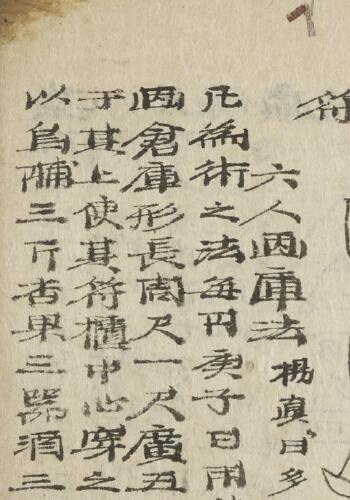 符
六人囙庫法 楊真曰多
凡為術之法每月庚子日用
囙倉庫形長周尺一尺廣五
于其上使其符櫃中心穿之
以烏脯三斤杏果三器酒三